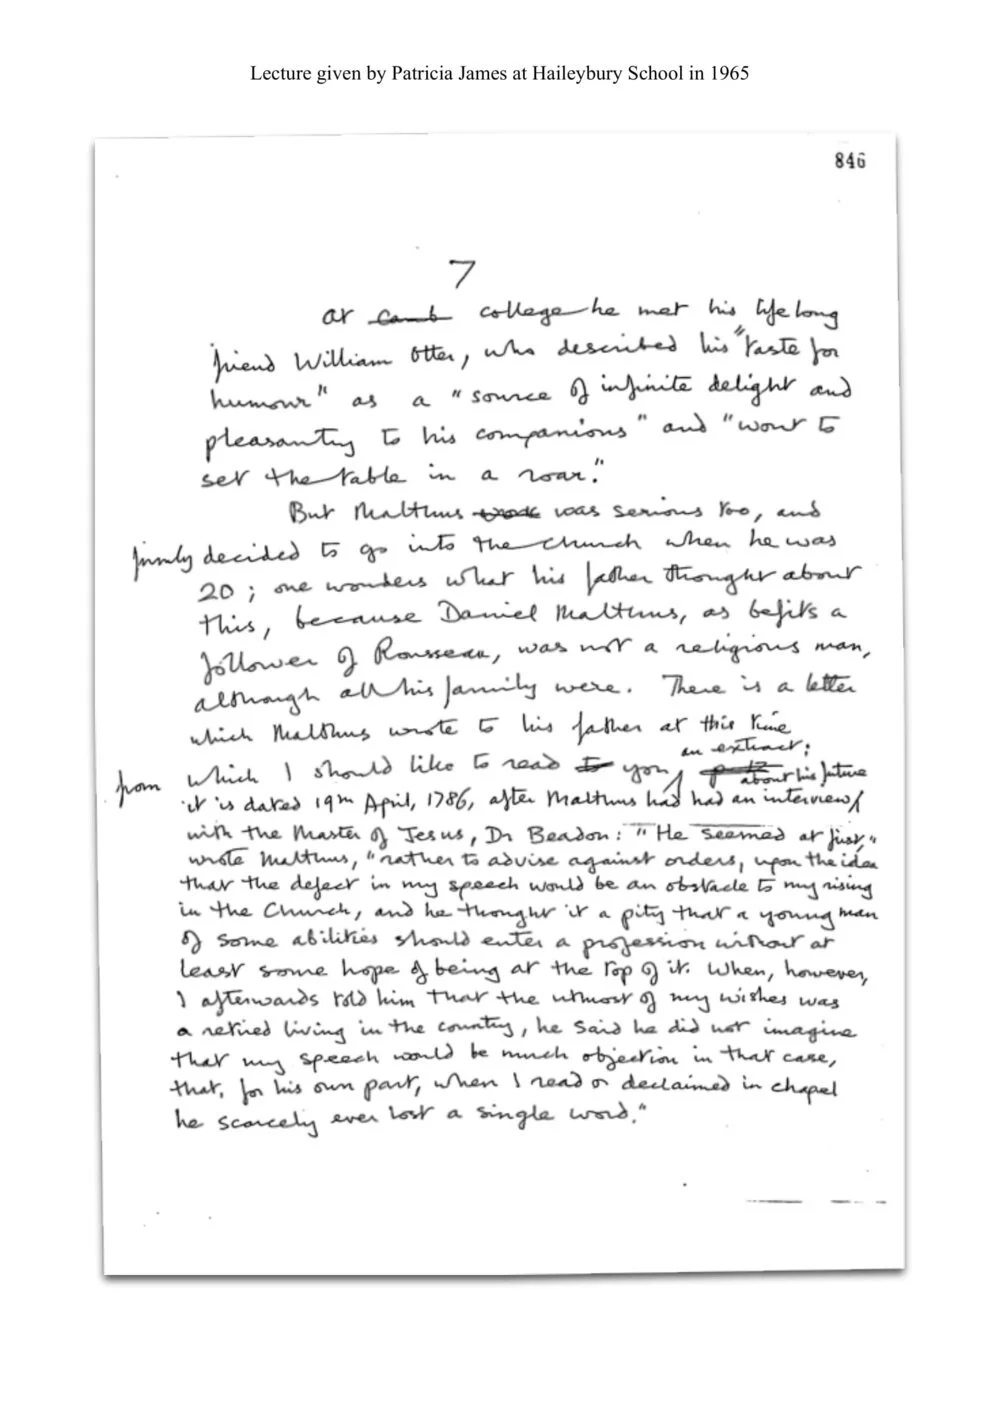 Lecture given by Patricia James at Haileybury School in 1965
846
7
At Camb college he met his life long
friend William Otter, who described his "taste for
humour" as a "source of infinite delight and
pleasantry to his companions" and "wont to
set the table in a roar."
But Malthus was serious too, and
firmly decided to go into the Church when he was
20; one wonders what his father thought about
this, because Daniel Malthus, as befits a
follower of Rousseau, was not a religious man,
although all his family were. There is a letter
which Malthus wrote to his father at this time
an extract:
from which I should like to read to you
about his future
it is dated 19th April, 1786, after Malthus had had an interview
with the Master of Jesus, Dr Beadon: "He seemed at first,"
wrote Malthus, "rather to advise against orders, upon the idea
that the defect in my speech would be an obstacle to my rising
in the Church, and he thought it a pity that a young man
of some abilities should enter a profession without at
least some hope of being at the top of it. When, however,
I afterwards told him that the utmost of my wishes was
a retired living in the country, he said he did not imagine
that my speech would be much objection in that case,
that, for his own part, when I read or declaimed in chapel
he scarcely ever lost a single word."